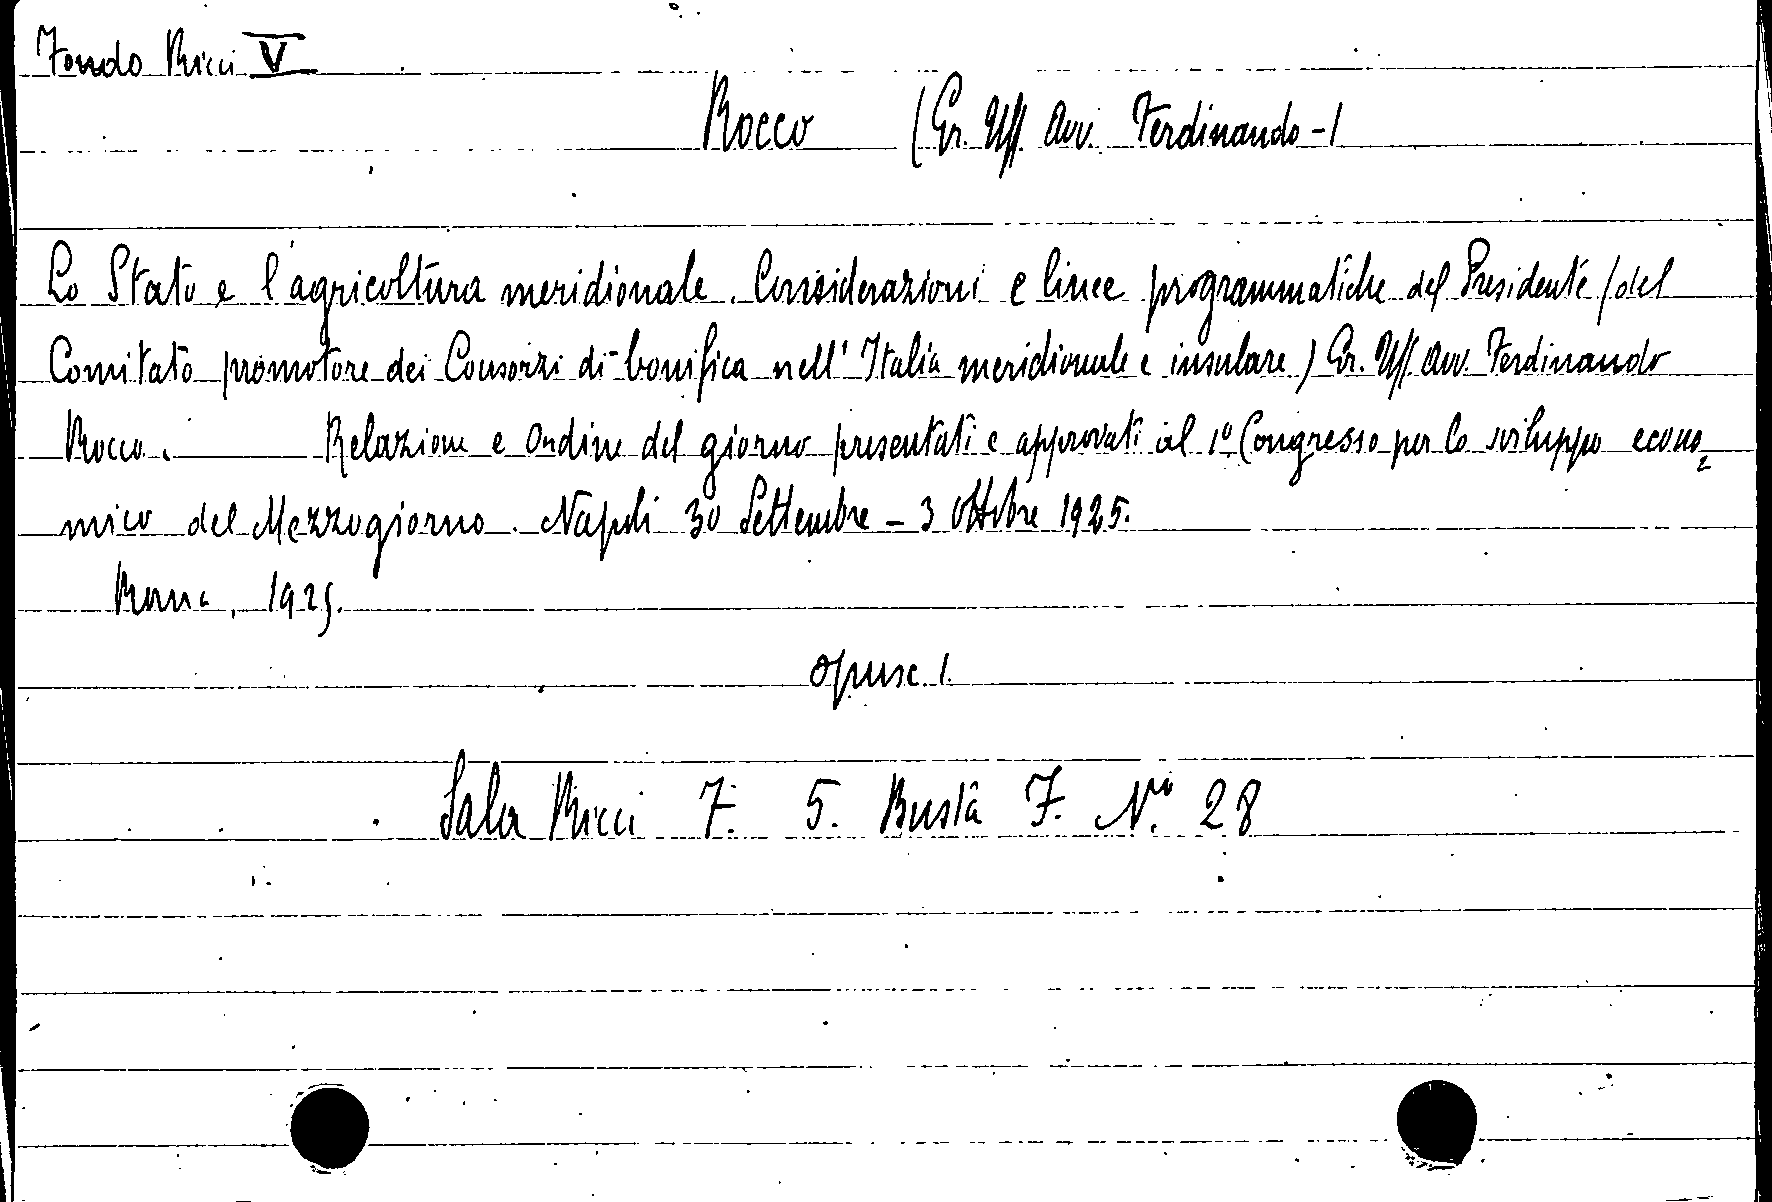 Fondo Ricci V
Rocco (Gr. Uff. Avv. Ferdinando-)
Lo Stato e l'agricoltura meridionale. Considerazioni e linee programmatiche del Presidente (del
Comitato promotore dei Consorzi di bonifica nell'Italia meridionale e insulare) Gr. Uff. Avv. Ferdinando
Rocco. Relazione e Ordine del giorno presentati e approvati al 1º Congresso per lo sviluppo econo=
mico del Mezzogiorno. Napoli 30 Settembre - 3 Ottobre 1925.
Roma, 1925.
opusc. 1.
Sala Ricci 7. 5. Busta 7. Nº. 28